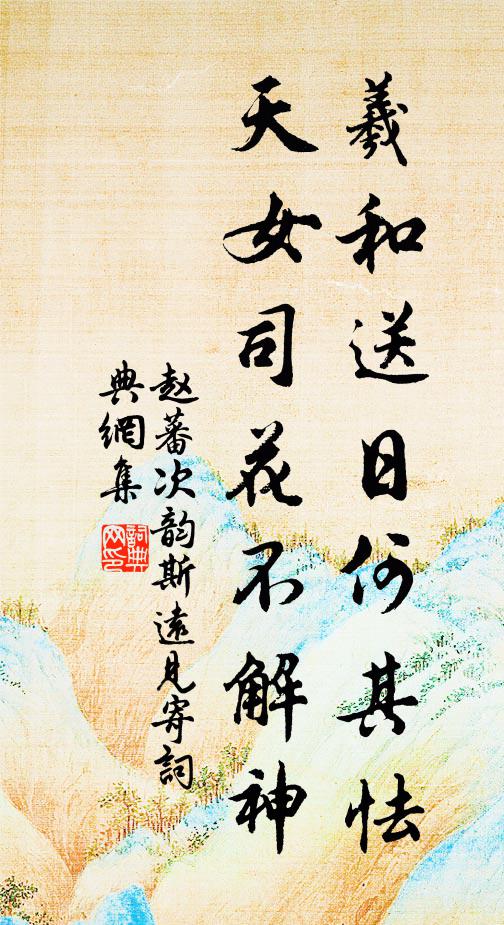 羲和送日何其怯
天女司花不解神
赵蕃次韵斯遠見寄詞
典網集
詞典